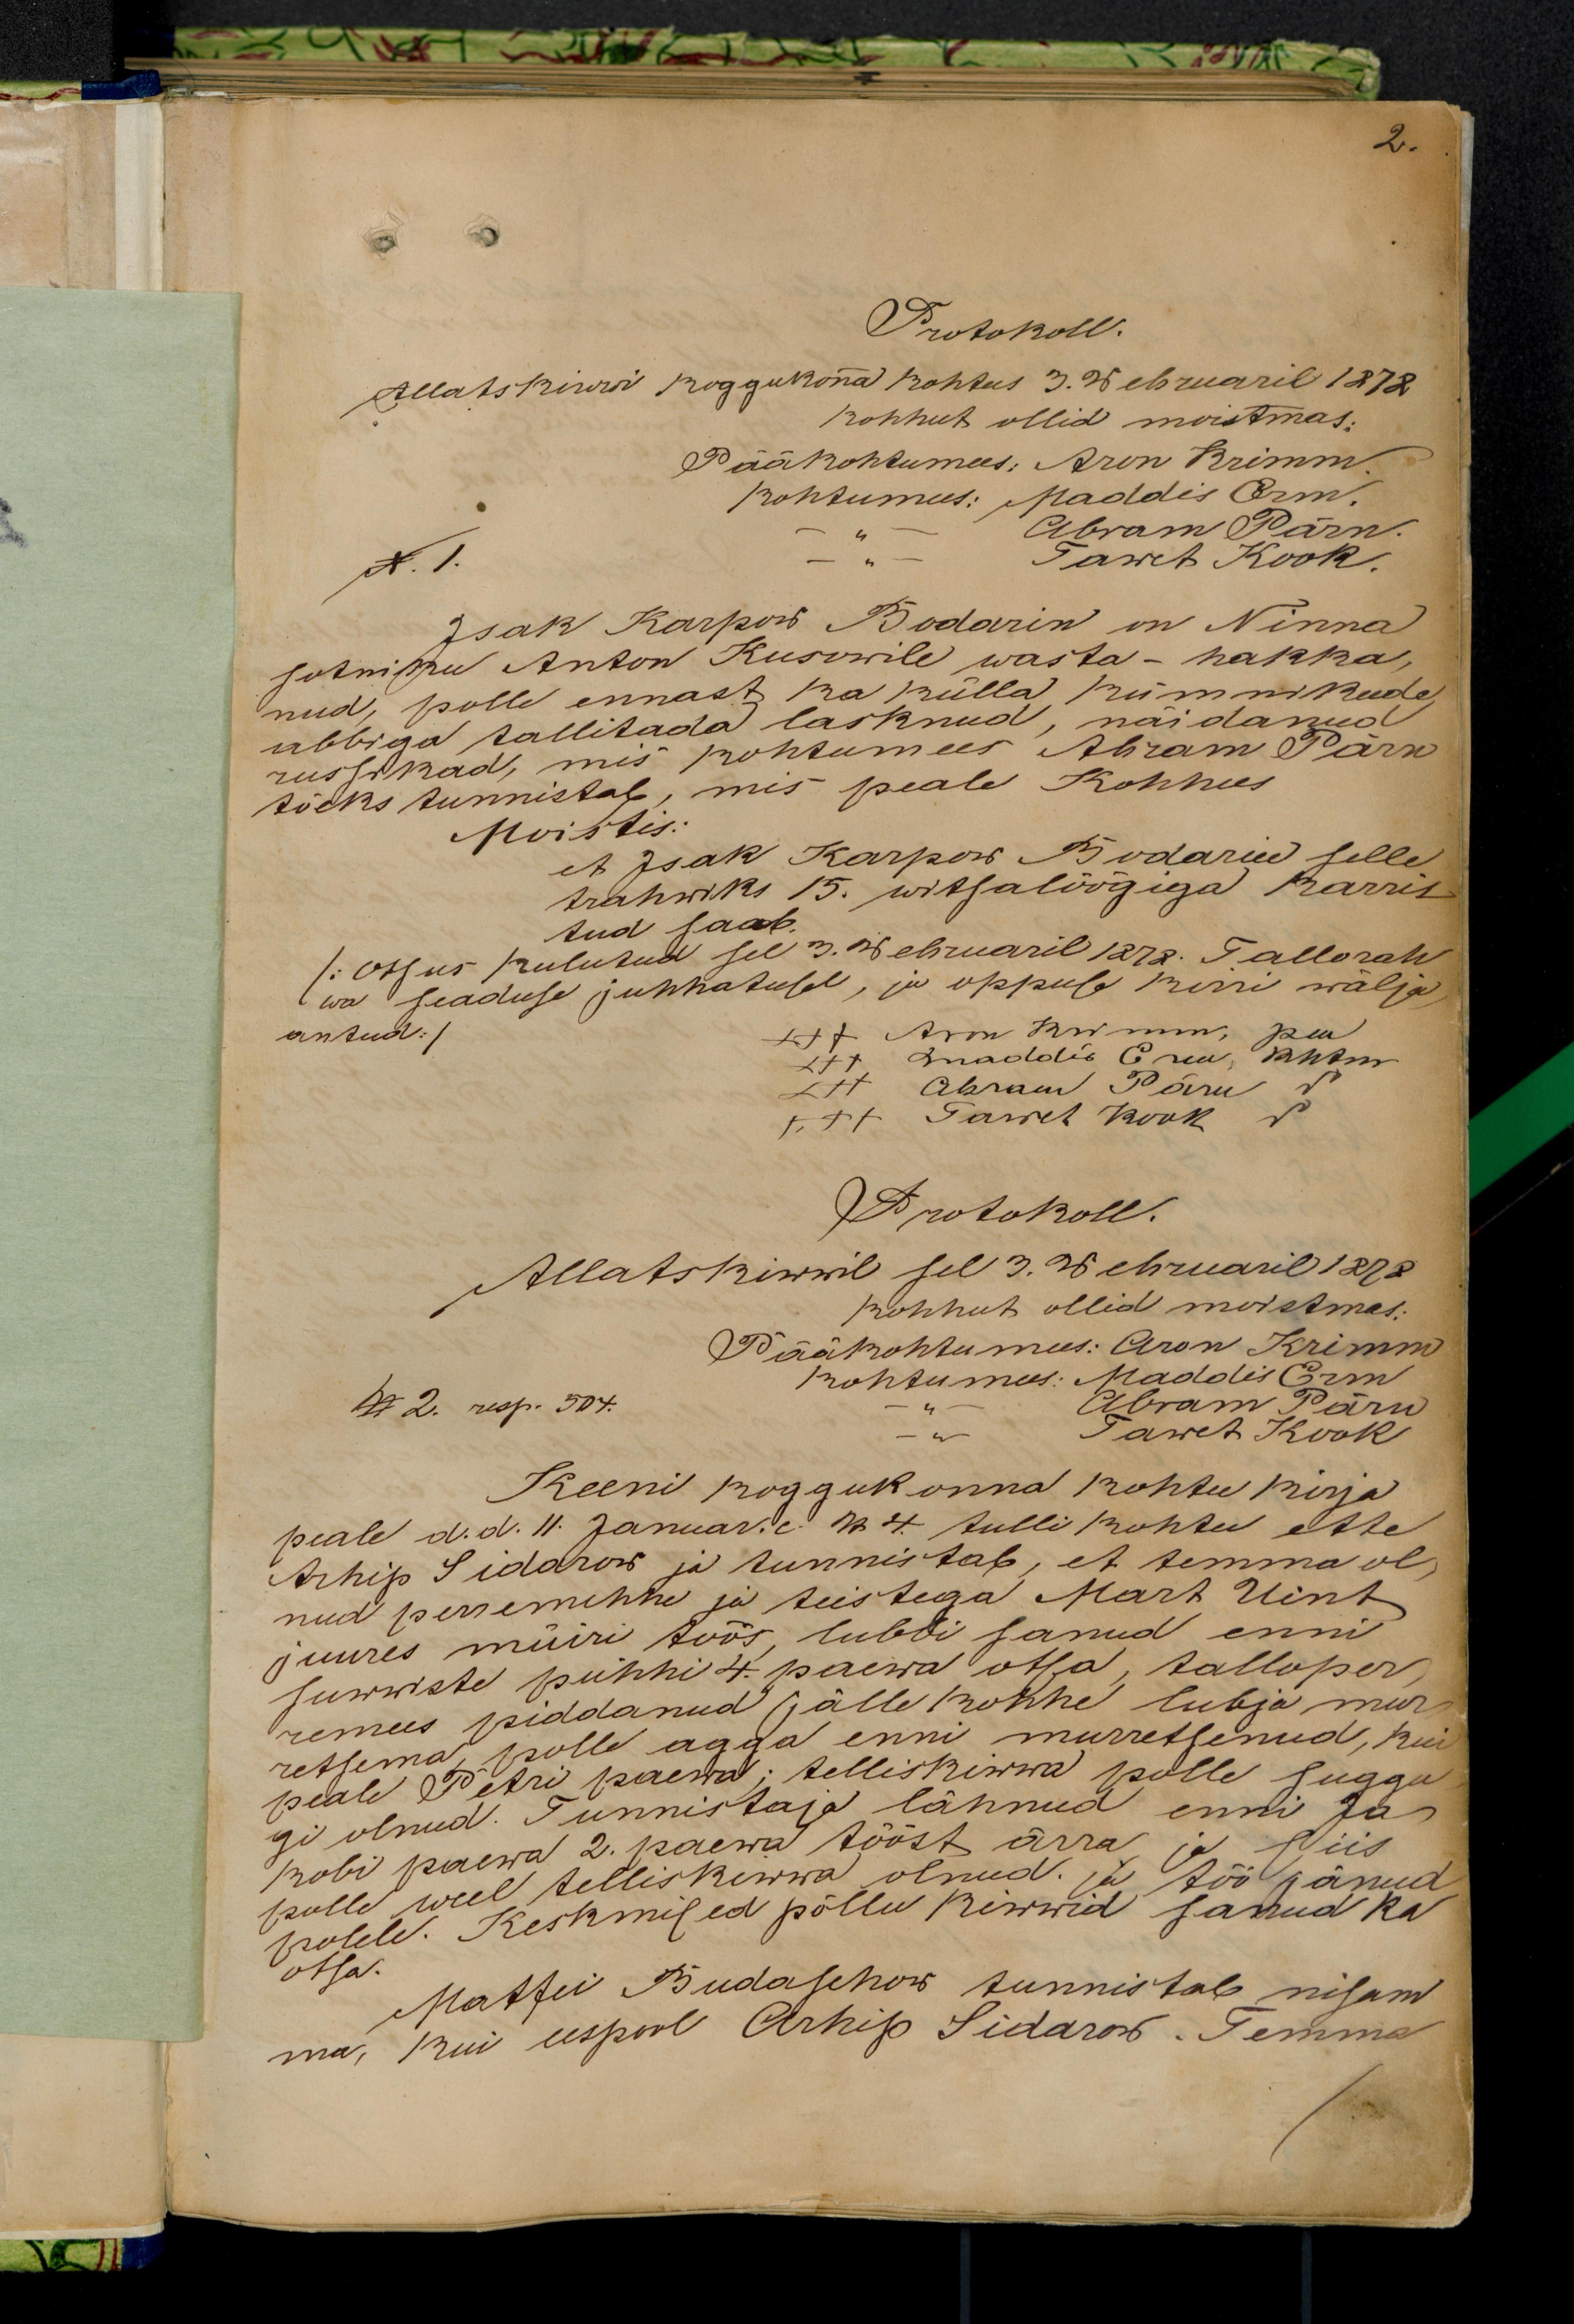 2.
Protokoll.
Allatskiwwi koggukonna kohtus 3. Webruaril 1878
kohhut ollid moistmas:
Pääkohtumees: Aron Krimm.
kohtumees: Maddis Erm.
— " — Abram Pärn.
N. 1. — " — Tawet Kook.
Isak Karpow Bodarin on Ninna
sotniku Anton Kusowile wasta - hakka,
nud, polle ennast ka külla kümnikude
abbiga tallitada lasknud, näidanud
russikad, mis kohtumees Abram Pärn
töeks tunnistab, mis peale Kohhus
Moistis:
et Isak Karpow Bodarin selle
trahwiks 15. witsalöögiga karris
tud saab.
/: Otsus kulutud sel 3. Webruaril 1878. Tallorah
wa seaduse juhhatusel, ja oppuse kirri wälja
antud :/
+++ Aron Krimm, pea
+++ Maddis Erm, khtm
+++ Abram Pärn
+++ Tawet Kook
Protokoll.
Allatskiwwil sel 3. Webruaril 1878
kohhut ollid moistmas:
Pääkohtumees: Aron Krimm
kohtumees: Maddis Erm
№ 2. resp. 504. — " — Abram Pärn
— " — Tawet Kook
Keeni koggukonna kohtu kirja
peale d. d. 11. Januar. c. № 4. tulli kohtu ette
Arhip Sidarow ja tunnistab, et temma ol,
nud perremehhe ja teistega Mart Uint
juures müiri töös, lubbi sanud enni
suwwiste pühhi 4. paewa otsa, talloper,
remees piddanud jälle kohhe lubja mur,
retsema, polle agga enni murretsenud, kui
peale Petri paewa; telliskiwwa polle suggu
gi olnud. Tunnistaja lähnud enni Ja,
kobi paewa 2. paewa tööst ärra ja siis
polle weel telliskiwwa olnud. ja töö jänud
polele. Keskmised pöllu kiwwid sanud ka
otsa.
Matfei Budaschow tunnistab nisam
ma, kui eespool Arhip Sidarow. Temma